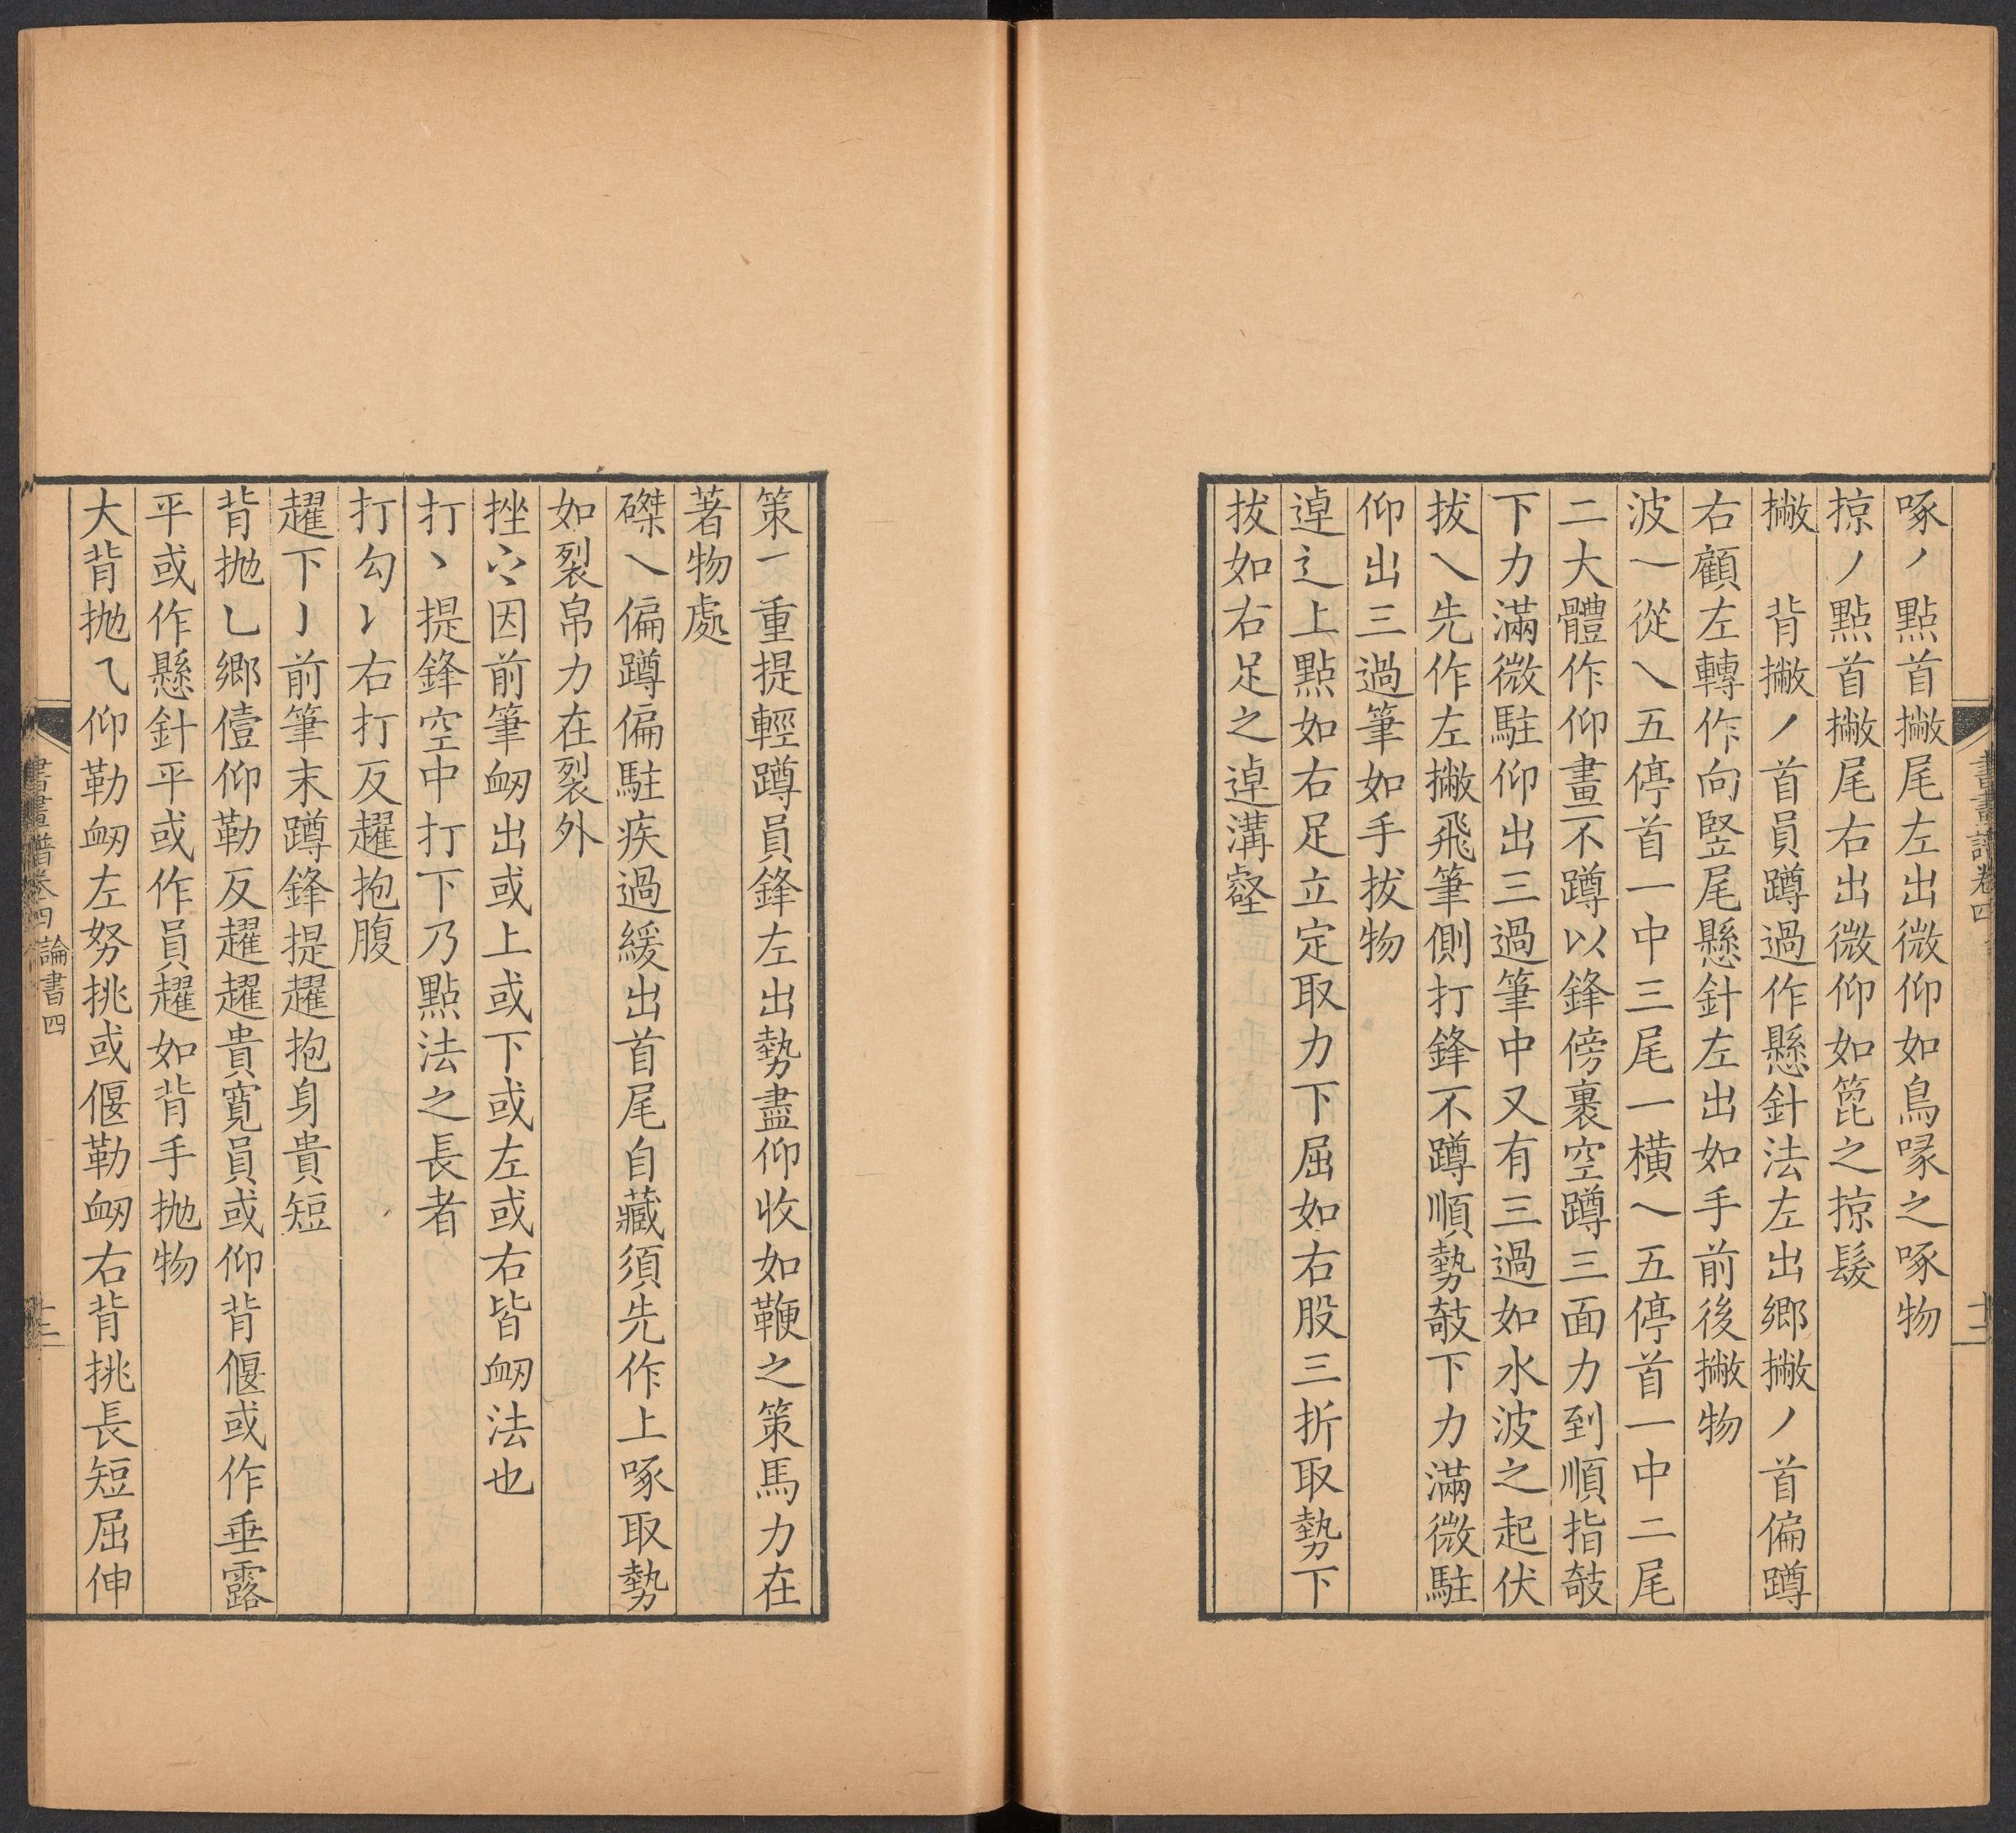 啄㇒點首撇尾左出微仰如鳥喙之啄物
掠丿點首撇尾右出微仰如箆之掠髮
撇　背撇丿首員蹲過作懸針法左出鄉撇丿首偏蹲
右顧左轉作向竪尾懸針左出如手前後撇物
波㇀從乀五停首一中三尾一橫乀五停首一中二尾
二大體作仰畫不蹲以鋒傍裹空蹲三面力到順指㩻
下力滿微駐仰出三過筆中又有三過如水波之起伏
拔乀先作左撇飛筆側打鋒不蹲順勢㩻下力滿微駐
仰出三過筆如手拔物
逴辶上點如右足立定取力下屈如右股三折取勢下
拔如右足之逴溝壑
書畫譜卷四
十二
策㇀重提輕蹲員鋒左出勢盡仰收如鞭之策馬力在
著物處
磔乀偏蹲偏駐疾過緩出首尾自藏須先作上啄取勢
如裂帛力在裂外
挫因前筆衂出或上或下或左或右皆衂法也
打丶提鋒空中打下乃點法之長者
打勾右打反趯抱腹
趯下亅前筆末蹲鋒提趯抱身貴短
背拋乚鄉儓仰勒反趯趯貴寬員或仰背偃或作垂露
平或作懸針平或作員趯如背手拋物
大背拋乁仰勒衂左努挑或偃勒衂右背挑長短屈伸
書畫譜卷四　論書四
十二